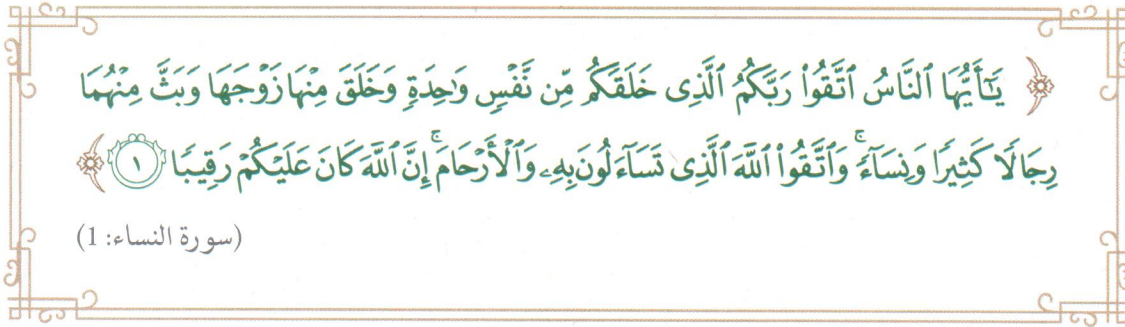 ﴿ يَـٰٓأَيُّهَا ٱلنَّاسُ ٱتَّقُوا۟ رَبَّكُمُ ٱلَّذِى خَلَقَكُم مِّن نَّفْسٍ وَٰحِدَةٍ وَخَلَقَ مِنْهَا زَوْجَهَا وَبَثَّ مِنْهُمَا
رِجَالًا كَثِيرًا وَنِسَآءً ۚ وَٱتَّقُوا۟ ٱللَّهَ ٱلَّذِى تَسَآءَلُونَ بِهِۦ وَٱلْأَرْحَامَ ۚ إِنَّ ٱللَّهَ كَانَ عَلَيْكُمْ رَقِيبًا ١ ﴾
(سورة النساء: 1)